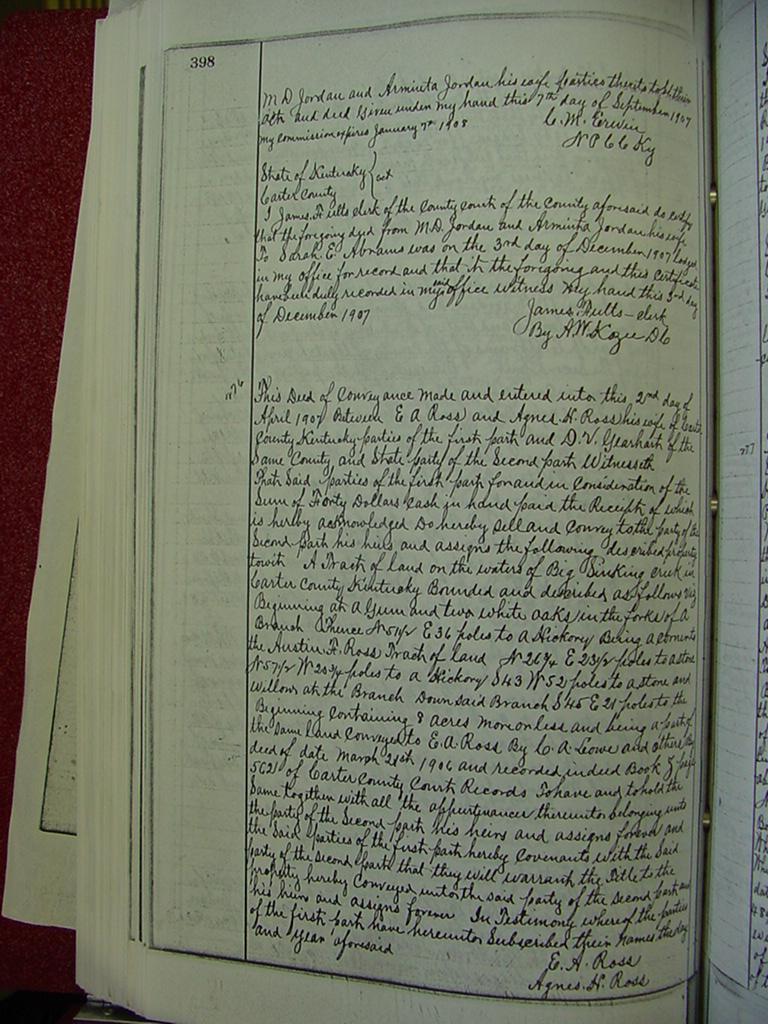 398
M D Jordan and Arminta Jordan his wife parties thereto to be their
act and deed Given under my hand this 7th day of September 1907
My commission expires January 7th 1908
C. M. Erwin
N P C C Ky
State of Kentucky
Carter County } sct
I James Fults clerk of the county court of the County aforesaid do certify
that the foregoing deed from M.D. Jordan and Arminta Jordan his wife
To Sarah E. Abrams was on the 3rd day of December 1907 lodged
in my office for record and that it the foregoing and this Certificate
have been duly recorded in my said office witness My hand this 3rd day
of December 1907
James Fults - clerk
By A.W. Kozee D C
This Deed of Conveyance Made and entered into this 2nd day of
April 1907 Between E A Ross and Agnes. H. Ross his wife of Carter
County Kentucky parties of the first part and D. V. Gearhart of the
Same County and State party of the Second part Witnesseth
That Said parties of the first part for and in Consideration of the
Sum of Forty Dollars Cash in hand paid the Receipt of which
is hereby acknowledged Do hereby Sell and Convey to the party of the
Second part his heirs and assigns the following described property
towit A Tract of land on the waters of Big Sinking creek in
Carter County Kentucky Bounded and described as follows viz
Beginning at A Gum and two white oaks in the forks of A
Branch Thence N 51 1/2 E 36 poles to a Hickory Being a corner to
the Austin F. Ross Tract of land N 26 3/4 E 23 1/2 poles to a stone
N 57 1/2 W 20 3/4 poles to a Hickory S 43 W 52 poles to a stone and
willows at the Branch Down Said Branch S 45 E 21 poles to the
Beginning Containing 8 acres More or less and being a part of
the same land conveyed to E. A. Ross By C. A. Lowe and others By
deed of date March 28th 1906 and recorded in deed Book Z page
5621 of Carter County Court Records To have and to hold the
Same together with all the appurtenances thereunto belonging unto
the party of the Second part his heirs and assigns forever and
the Said parties of the first part hereby Covenants with the Said
party of the Second part that they will warrant the Title to the
property hereby Conveyed unto the said party of the Second part and
his heirs and assigns forever In Testimony whereof the parties
of the first part have hereunto Subscribed their names the day
and year aforesaid
E. A. Ross
Agnes. H. Ross